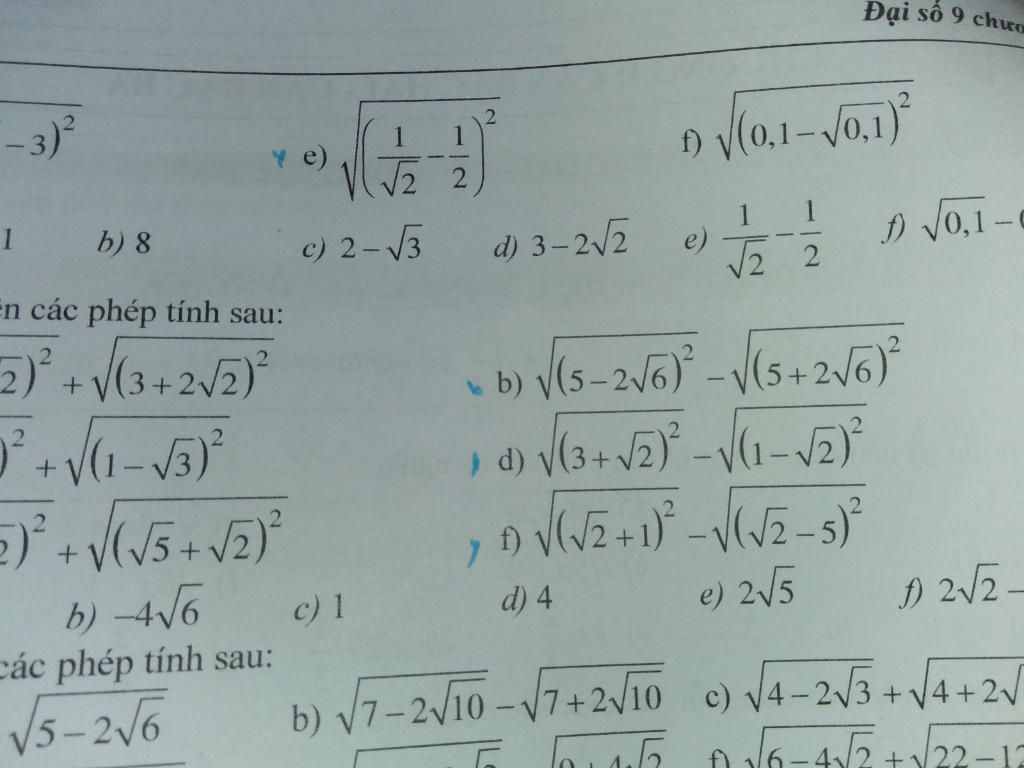 Đại số 9
− 3)² e) √((1/√2 − 1/2)²) f) √((0,1 − √0,1)²)
1 b) 8 c) 2 − √3 d) 3 − 2√2 e) 1/√2 − 1/2 f) √0,1 −
các phép tính sau:
2)² + √((3 + 2√2)²) b) √((5 − 2√6)²) − √((5 + 2√6)²)
)² + √((1 − √3)²) d) √((3 + √2)²) − √((1 − √2)²)
2)² + √((√5 + √2)²) f) √((√2 + 1)²) − √((√2 − 5)²)
b) −4√6 c) 1 d) 4 e) 2√5 f) 2√2 −
các phép tính sau:
√(5 − 2√6) b) √(7 − 2√10) − √(7 + 2√10) c) √(4 − 2√3) + √(4 + 2√
f) √(6 − 4√2) + √(22 − 12